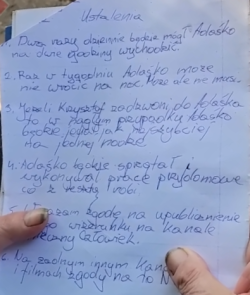 Ustalenia
1. Dwa razy dziennie będzie mógł Adaśko
na dwie godziny wychodzić.
2. Raz w tygodniu Adaśko może
nie wrócić na noc. Może ale nie musi.
3. Jeżeli Krzysztof zadzwoni do Adaśka
to w nagłym przypadku Adaśko
będzie jak najszybciej
na jednej nodze.
4. Adaśko będzie sprzątał i
wykonywał prace przydomowe
co z resztą robi
zgodę na upublicznienie
wizerunku na kanale
człowiek.
6. Na żadnym innym
i filmach zgody na to N